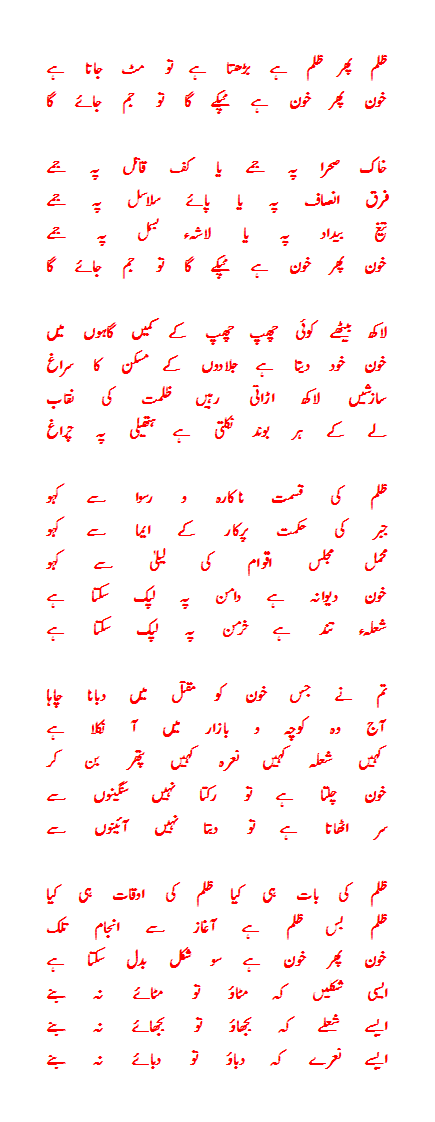 ظلم پھر ظلم ہے بڑھتا ہے تو مٹ جاتا ہے
خون پھر خون ہے ٹپکے گا تو جم جائے گا
خاک صحرا پہ جمے یا کف قاتل پہ جمے
فرق انصاف پہ یا پائے سلاسل پہ جمے
تیغ بیداد پہ یا لاشہء بسمل پہ جمے
خون پھر خون ہے ٹپکے گا تو جم جائے گا
لاکھ بیٹھے کوئی چھپ چھپ کے کمیں گاہوں میں
خون خود دیتا ہے جلادوں کے مسکن کا سراغ
سازشیں لاکھ اڑاتی رہیں ظلمت کی نقاب
لے کے ہر بوند نکلتی ہے ہتھیلی پہ چراغ
ظلم کی قسمت ناکارہ و رسوا سے کہو
جبر کی حکمت پرکار کے ایما سے کہو
محمل مجلس اقوام کی لیلیٰ سے کہو
خون دیوانہ ہے دامن پہ لپک سکتا ہے
شعلہء تند ہے خرمن پہ لپک سکتا ہے
تم نے جس خون کو مقتل میں دبانا چاہا
آج وہ کوچہ و بازار میں آ نکلا ہے
کہیں شعلہ کہیں نعرہ کہیں پتھر بن کر
خون چلتا ہے تو رکتا نہیں سنگینوں سے
سر اٹھاتا ہے تو دبتا نہیں آئینوں سے
ظلم کی بات ہی کیا ظلم کی اوقات ہی کیا
ظلم بس ظلم ہے آغاز سے انجام تلک
خون پھر خون ہے سو شکل بدل سکتا ہے
ایسی شکلیں کہ مٹاؤ تو مٹائے نہ بنے
ایسے شعلے کہ بجھاؤ تو بجھائے نہ بنے
ایسے نعرے کہ دباؤ تو دبائے نہ بنے